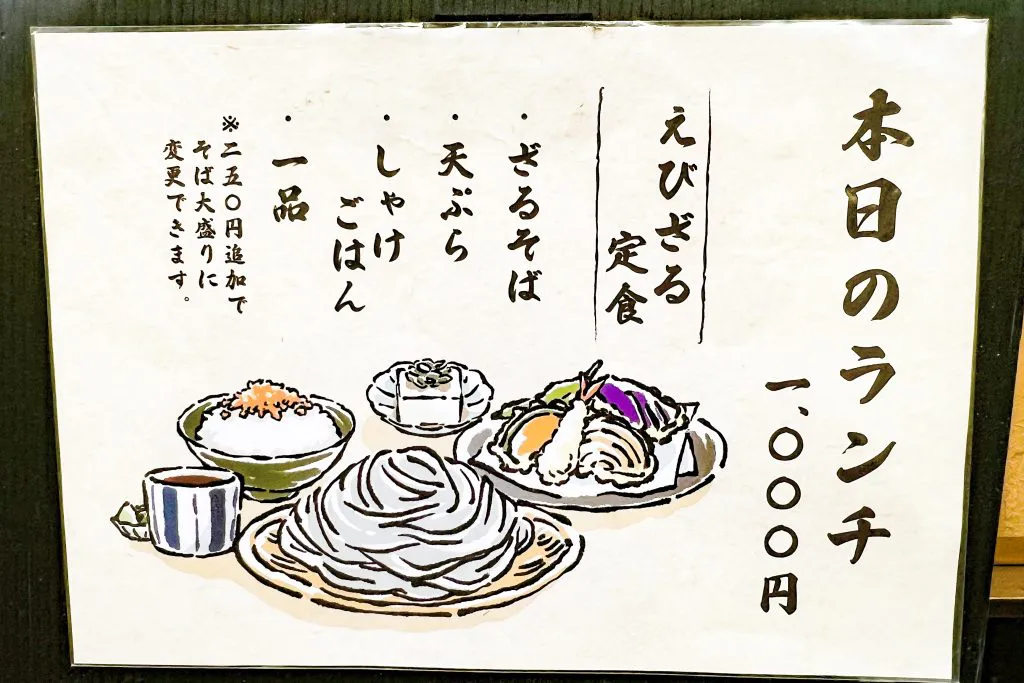 本日のランチ
一、〇〇〇円
えびざる
定食
・ざるそば
・天ぷら
・しゃけ
ごはん
・一品
※二五〇円追加で
そば大盛りに
変更できます。